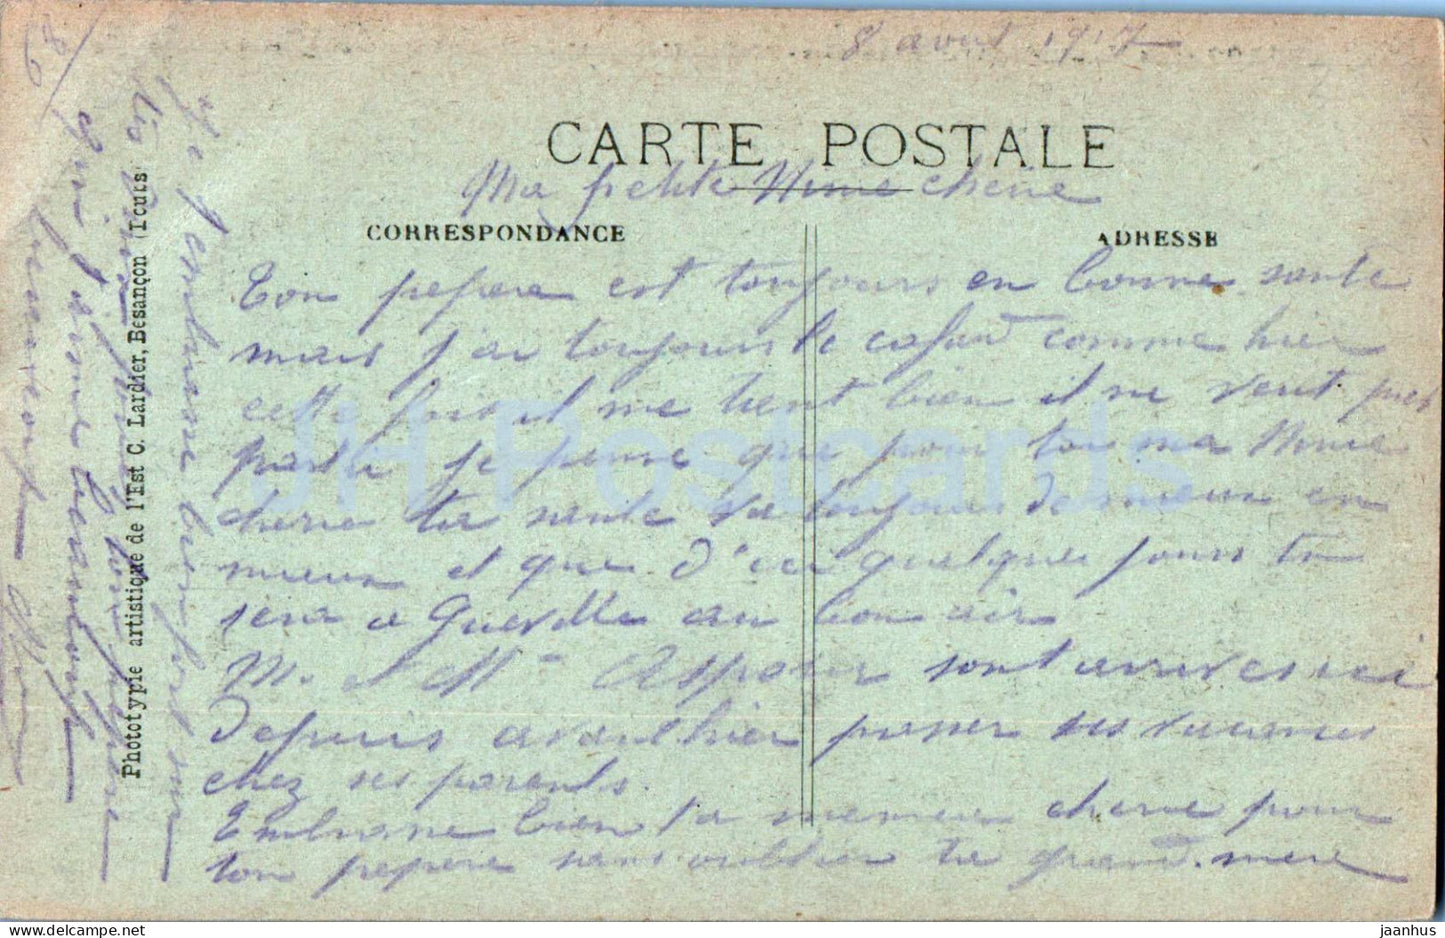 8 aout 1917
CARTE POSTALE
Ma petite Nime cherie
CORRESPONDANCE
ADRESSE
Ton pepere est toujours en bonne sante
mais j'ai toujours le cafard comme hier
cette fois il me tient bien il ne veut pas
partir je pense que pour toi ma Nime
cherie ta sante va toujours de mieux en
mieux et que d'ici quelques jours tu
sera a au bon air
M. et Mme sont arrives ici
depuis avant hier passer ses vacances
chez ses parents.
Embrasse bien ta memere cherie pour
ton pepere sans oublier ta grand-mere
Je t'embrasse bien fort sur
tes ton pepere
qui t'aime beaucoup
beaucoup
Phototypie artistique de l'Est C. Lardier, Besançon (Doubs)
86
JH Postcards
delcampe.net
jaanhus